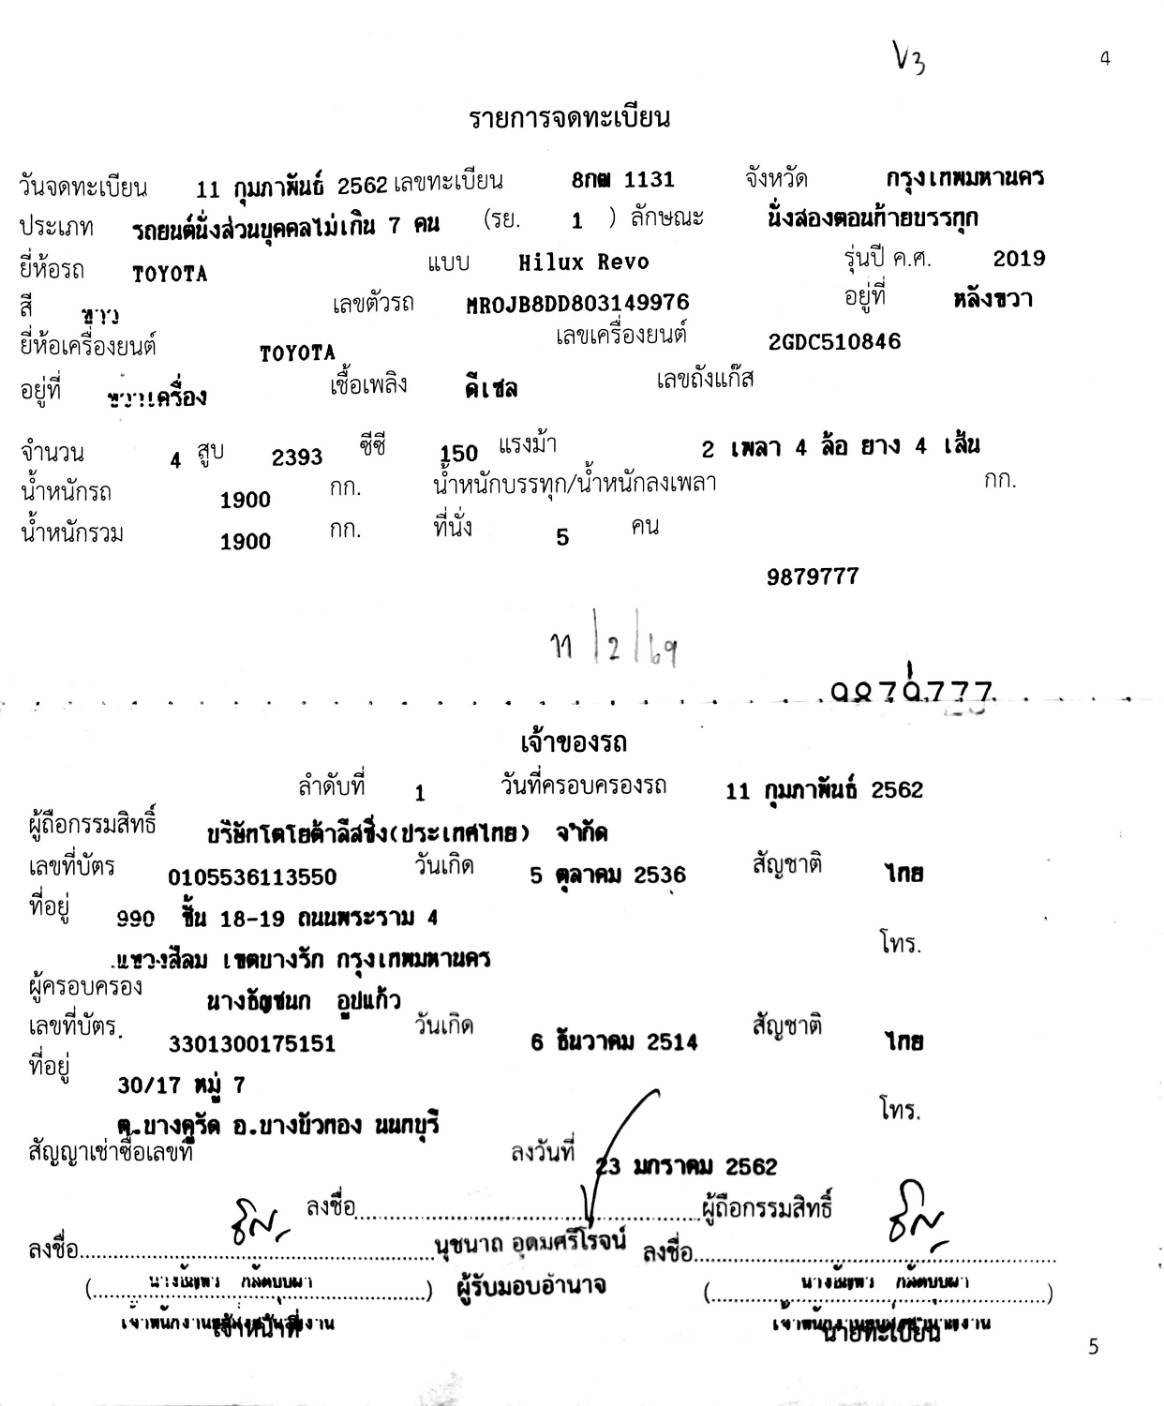 V3 4
รายการจดทะเบียน
วันจดทะเบียน 11 กุมภาพันธ์ 2562 เลขทะเบียน 8กฒ 1131 จังหวัด กรุงเทพมหานคร
ประเภท รถยนต์นั่งส่วนบุคคลไม่เกิน 7 คน (รย. 1 ) ลักษณะ นั่งสองตอนท้ายบรรทุก
ยี่ห้อรถ TOYOTA แบบ Hilux Revo รุ่นปี ค.ศ. 2019
สี ขาว เลขตัวรถ MR0JB8DD803149976 อยู่ที่ หลังขวา
ยี่ห้อเครื่องยนต์ TOYOTA เลขเครื่องยนต์ 2GDC510846
อยู่ที่ ขวาเครื่อง เชื้อเพลิง ดีเซล เลขถังแก๊ส
จำนวน 4 สูบ 2393 ซีซี 150 แรงม้า 2 เพลา 4 ล้อ ยาง 4 เส้น
น้ำหนักรถ 1900 กก. น้ำหนักบรรทุก/น้ำหนักลงเพลา กก.
น้ำหนักรวม 1900 กก. ที่นั่ง 5 คน
9879777
11/2/69
9879777
เจ้าของรถ
ลำดับที่ 1 วันที่ครอบครองรถ 11 กุมภาพันธ์ 2562
ผู้ถือกรรมสิทธิ์ บริษัทโตโยต้าลีสซิ่ง(ประเทศไทย) จำกัด
เลขที่บัตร 0105536113550 วันเกิด 5 ตุลาคม 2536 สัญชาติ ไทย
ที่อยู่ 990 ชั้น 18-19 ถนนพระราม 4
โทร.
แขวงสีลม เขตบางรัก กรุงเทพมหานคร
ผู้ครอบครอง นางธัญชนก อูปแก้ว
เลขที่บัตร. 3301300175151 วันเกิด 6 ธันวาคม 2514 สัญชาติ ไทย
ที่อยู่ 30/17 หมู่ 7
โทร.
ต.บางคูรัด อ.บางบัวทอง นนทบุรี
สัญญาเช่าซื้อเลขที่ ลงวันที่ 23 มกราคม 2562
ลงชื่อ ผู้ถือกรรมสิทธิ์
ลงชื่อ นุชนาถ อุดมศรีโรจน์ ลงชื่อ
ผู้รับมอบอำนาจ
เจ้าหน้าที่ นายทะเบียน
5